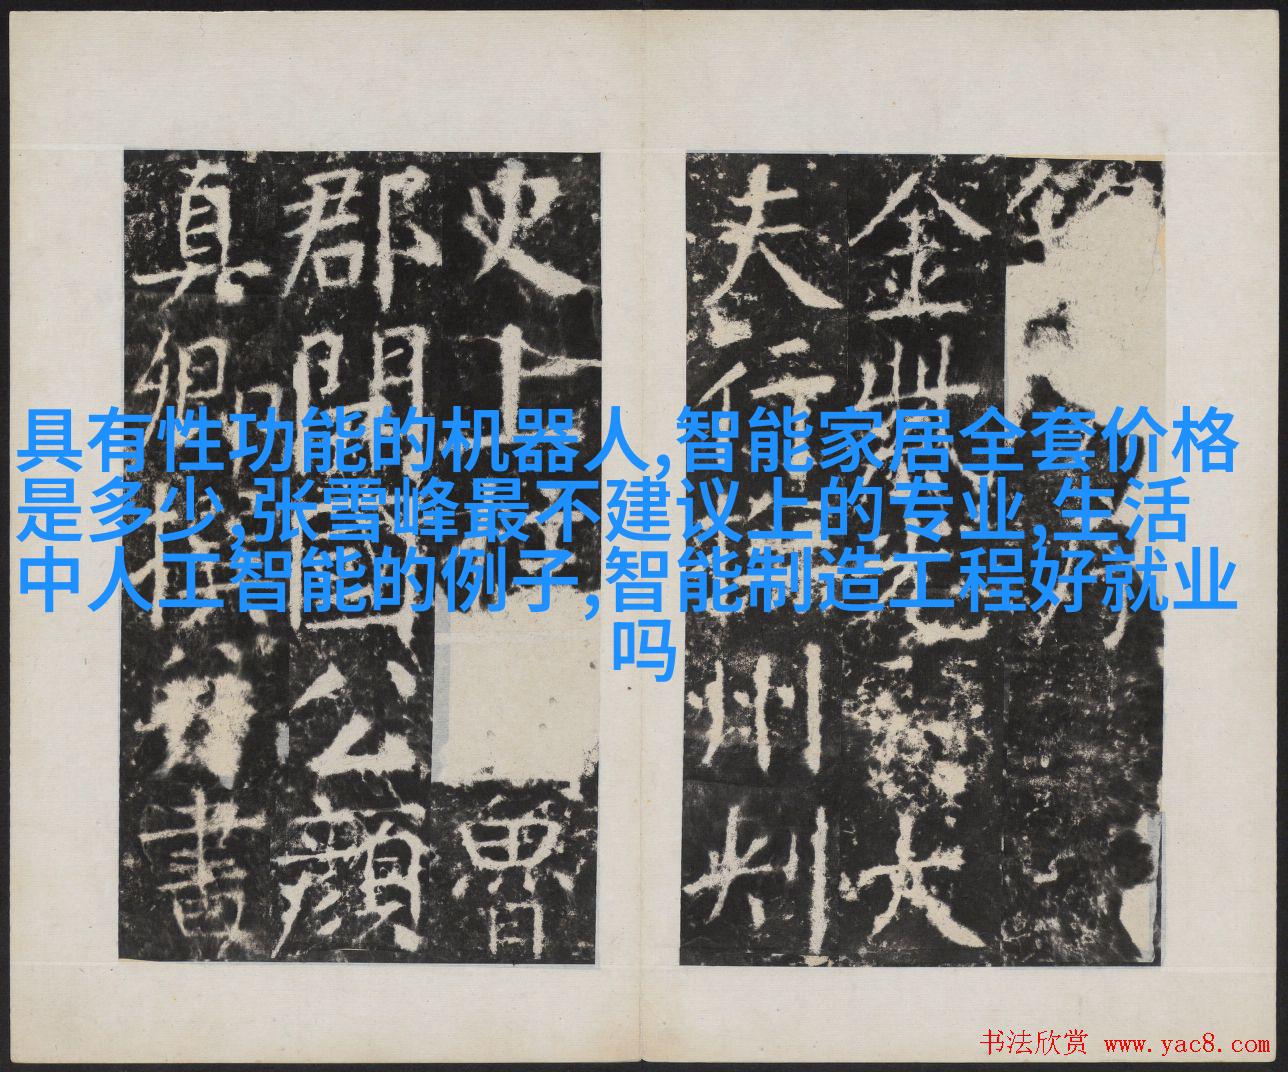 具有性功能的机器人,智能家居全套价格
是多少,张雪峰最不建议上的专业,生活
中人工智能的例子,智能制造工程好就业
吗
金紫光大
夫行州刺
史上魯
郡開國公顏
真卿撰書
书法欣赏 www.yac8.com